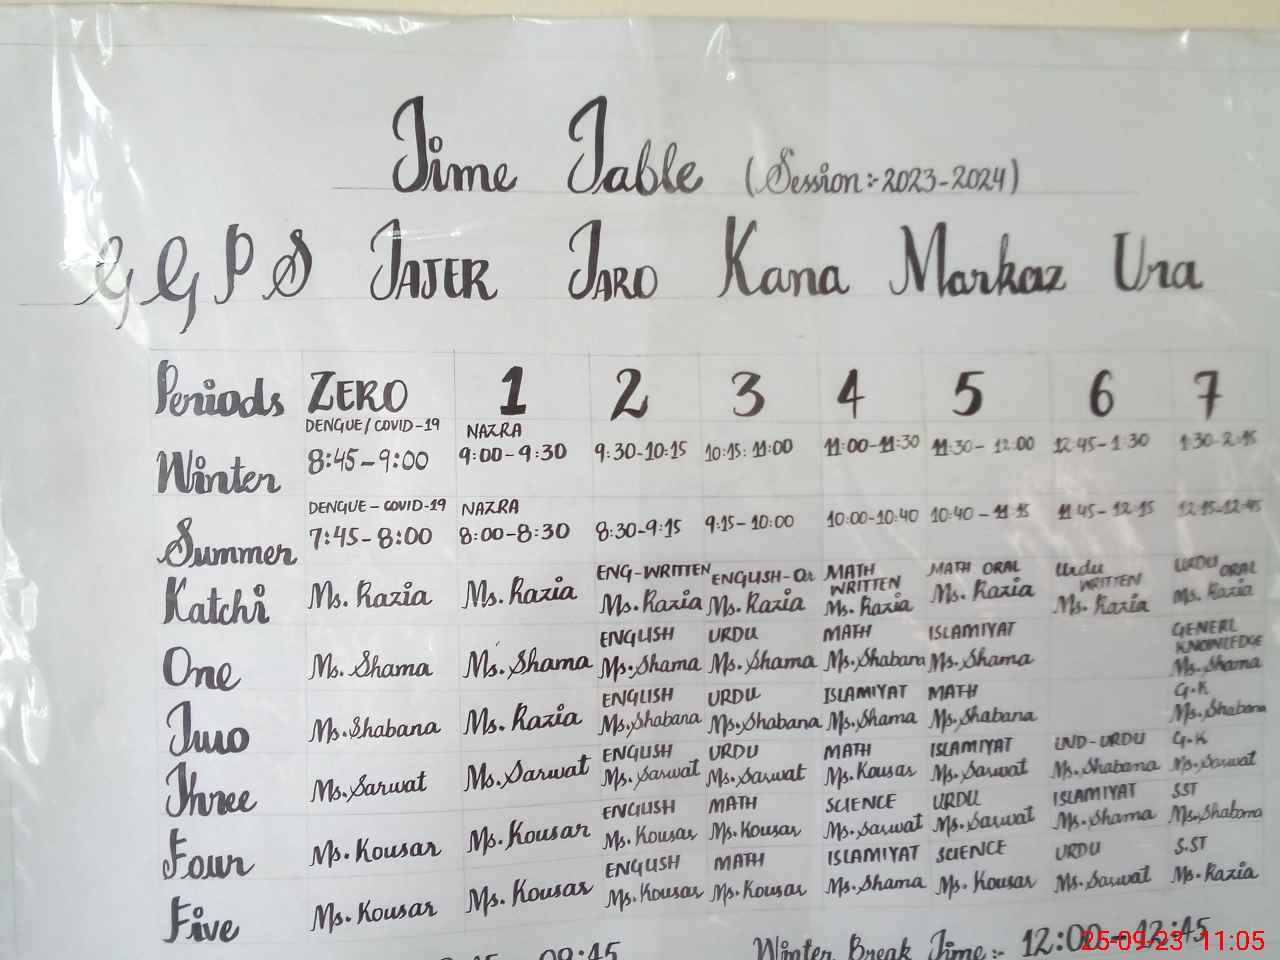 Time Table (Session:-2023-2024)
G G P S JAJER JARO Kana Markaz Ura
Periods ZERO 1 2 3 4 5 6 7
DENGUE/COVID-19 NAZRA
Winter 8:45-9:00 9:00-9:30 9:30-10:15 10:15:11:00 11:00-11:30 11:30-12:00 12:45-1:30 1:30-2:15
DENGUE-COVID-19 NAZRA
Summer 7:45-8:00 8:00-8:30 8:30-9:15 9:15-10:00 10:00-10:40 10:40-11:15 11:45-12:15 12:15-12:45
ENG-WRITTEN ENGLISH-Or MATH WRITTEN MATH ORAL Urdu WRITTEN URDU ORAL
Katchi Ms. Razia Ms. Razia Ms. Razia Ms. Razia Ms. Razia Ms. Razia Ms. Razia Ms. Razia
ENGLISH URDU MATH ISLAMIYAT GENERL KNOWLEDGE
One Ms. Shama Ms. Shama Ms. Shama Ms. Shama Ms. Shabana Ms. Shama Ms. Shama
ENGLISH URDU ISLAMIYAT MATH G.K
Two Ms. Shabana Ms. Razia Ms. Shabana Ms. Shabana Ms. Shama Ms. Shabana Ms. Shabana
ENGLISH URDU MATH ISLAMIYAT UND-URDU G.K
Three Ms. Sarwat Ms. Sarwat Ms. Sarwat Ms. Sarwat Ms. Kousar Ms. Sarwat Ms. Shabana Ms. Sarwat
ENGLISH MATH SCIENCE URDU ISLAMIYAT SST
Four Ms. Kousar Ms. Kousar Ms. Kousar Ms. Kousar Ms. Sarwat Ms. Sarwat Ms. Shama Ms. Shabana
ENGLISH MATH ISLAMIYAT SCIENCE URDU S.ST
Five Ms. Kousar Ms. Kousar Ms. Kousar Ms. Kousar Ms. Shama Ms. Kousar Ms. Sarwat Ms. Razia
09:45 Winter Break Time:- 12:00-12:45
25-09-23 11:05